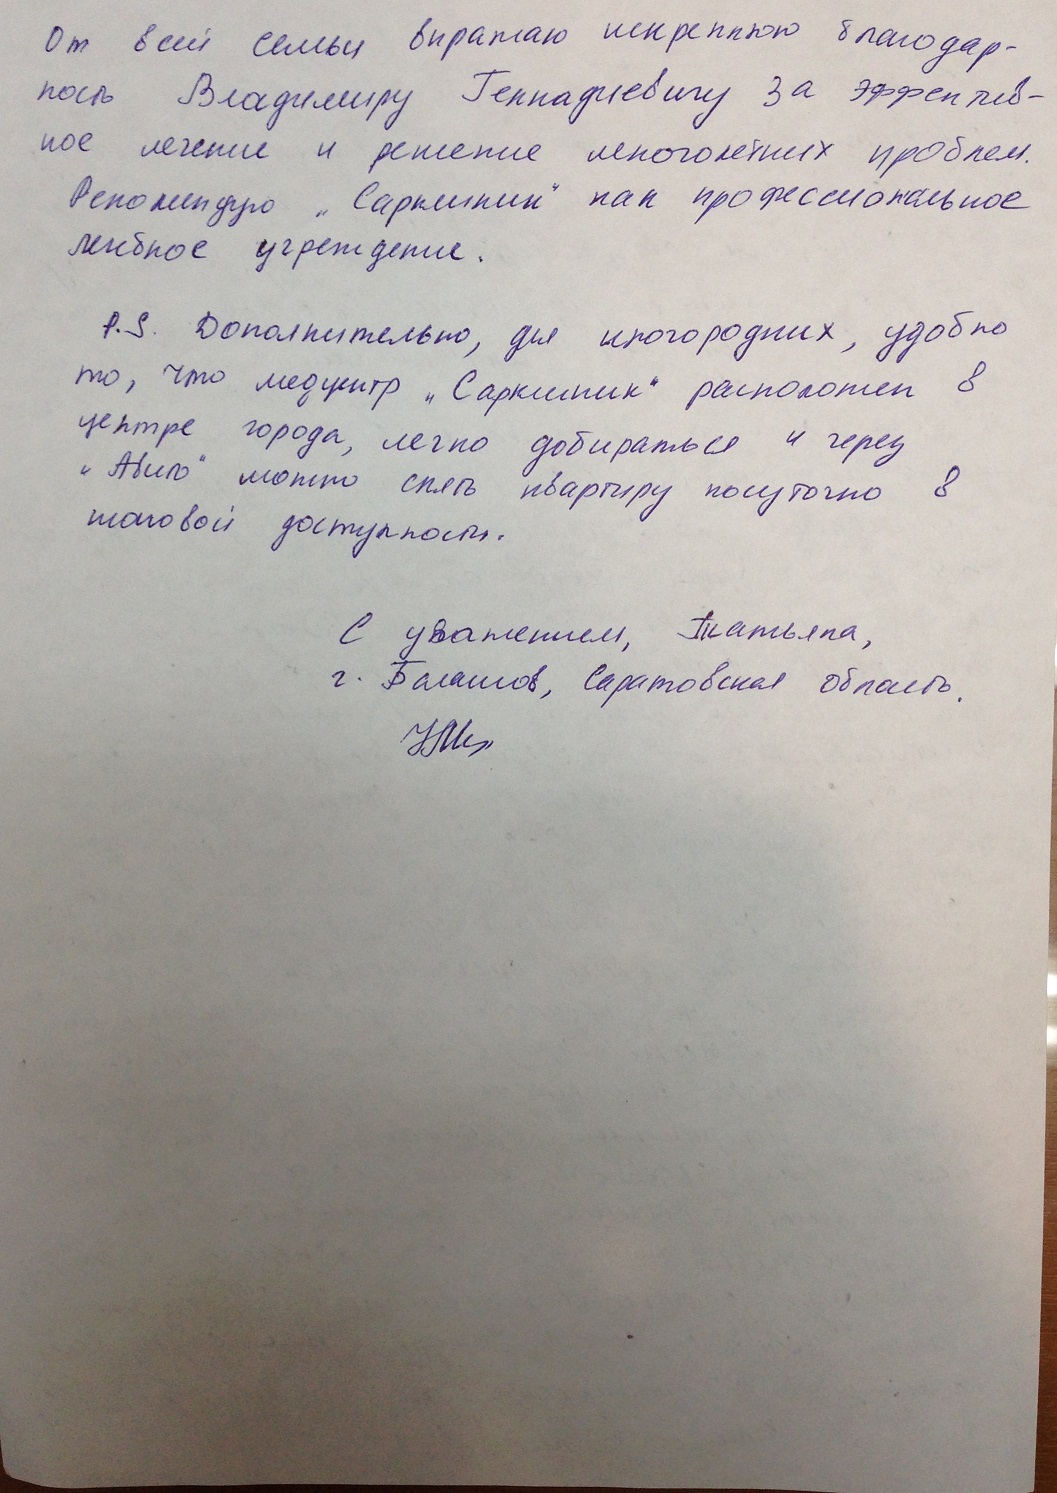 От всей семьи выражаю искреннюю благодар-
ность Владимиру Геннадиевичу за эффектив-
ное лечение и решение многолетних проблем.
Рекомендую „Сарклиник" как профессиональное
лечебное учреждение.
P.S. Дополнительно, для иногородних, удобно
то, что медцентр „Сарклиник" расположен в
центре города, легко добираться и через
„Авито" можно снять квартиру посуточно в
шаговой доступности.
С уважением, Татьяна,
г. Балашов, Саратовская область.